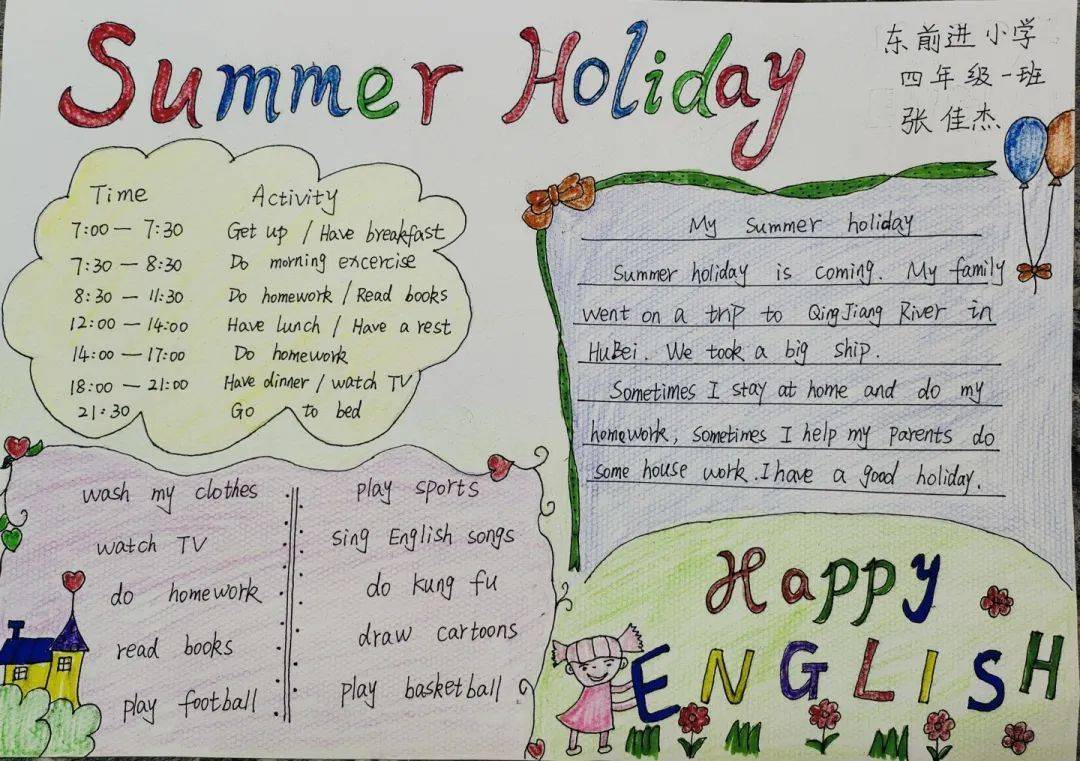 Summer Holiday
东前进小学
四年级一班
张佳杰
Time Activity
7:00 — 7:30 Get up / Have breakfast
7:30 — 8:30 Do morning excercise
8:30 — 11:30 Do homework / Read books
12:00 — 14:00 Have lunch / Have a rest
14:00 — 17:00 Do homework
18:00 — 21:00 Have dinner / watch TV
21:30 Go to bed
My Summer holiday
Summer holiday is coming. My family
went on a trip to QingJiang River in
HuBei. We took a big ship.
Sometimes I stay at home and do my
homework, sometimes I help my parents do
some house work. I have a good holiday.
wash my clothes
watch TV
do homework
read books
play football
play sports
sing English songs
do kung fu
draw cartoons
play basketball
Happy
ENGLISH